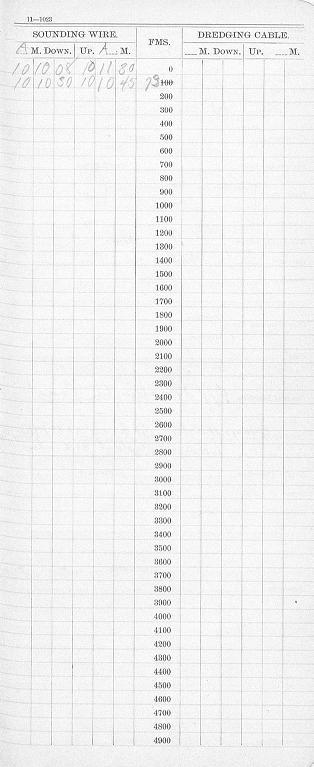 11—1023
SOUNDING WIRE. FMS. DREDGING CABLE.
A M. DOWN. UP. A M. M. DOWN. UP. M.
10 10 08 10 11 30 0
10 10 30 10 10 45 73 100
200
300
400
500
600
700
800
900
1000
1100
1200
1300
1400
1500
1600
1700
1800
1900
2000
2100
2200
2300
2400
2500
2600
2700
2800
2900
3000
3100
3200
3300
3400
3500
3600
3700
3800
3900
4000
4100
4200
4300
4400
4500
4600
4700
4800
4900